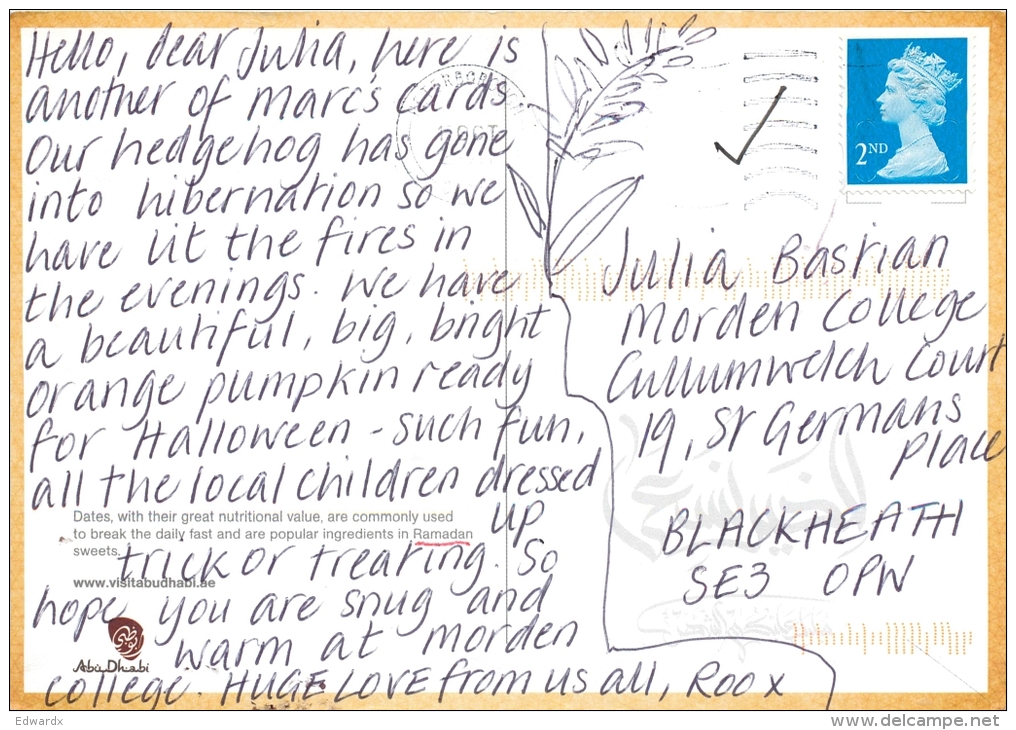 Hello, dear Julia, here is
another of Marc's cards.
Our hedgehog has gone
into hibernation so we
have lit the fires in
the evenings. We have
a beautiful, big, bright
orange pumpkin ready
for Halloween - such fun,
all the local children dressed
up
trick or treating. So
hope you are snug and
warm at Morden
College. HUGE LOVE from us all, Roo x
Dates, with their great nutritional value, are commonly used
to break the daily fast and are popular ingredients in Ramadan
sweets.
www.visitabudhabi.ae
أبوظبي
Abu Dhabi
2ND
Julia Bastian
Morden College
Cullumwelch Court
19, St Germans
Place
BLACKHEATH
SE3 0PW
Edwardx
www.delcampe.net